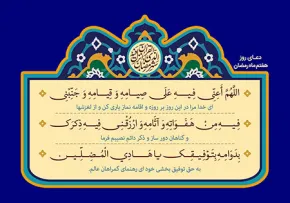 دعـای روز
هفتم ماه رمضان
اللّهُمَّ أَعِنّی فِیـهِ عَلـی صِیامِهِ وَ قِیامِهِ وَ جَنِّبْنی
ای خدا مرا در این روز بر روزه و اقامه نماز یاری کن و از لغزشها
فِیـهِ مِنْ هَفَواتِهِ وَ آثامِهِ وَ ارْزُقْنی فِیـهِ ذِکْرَکَ
و گناهان دور ساز و ذکر دائم نصیبم فرما
بِدَوامِهِ بِتَوْفِیقِـکَ یا هـادِیَ الْمُضِلّـین
به حق توفیق بخشی خود ای رهنمای گمراهان عالم.